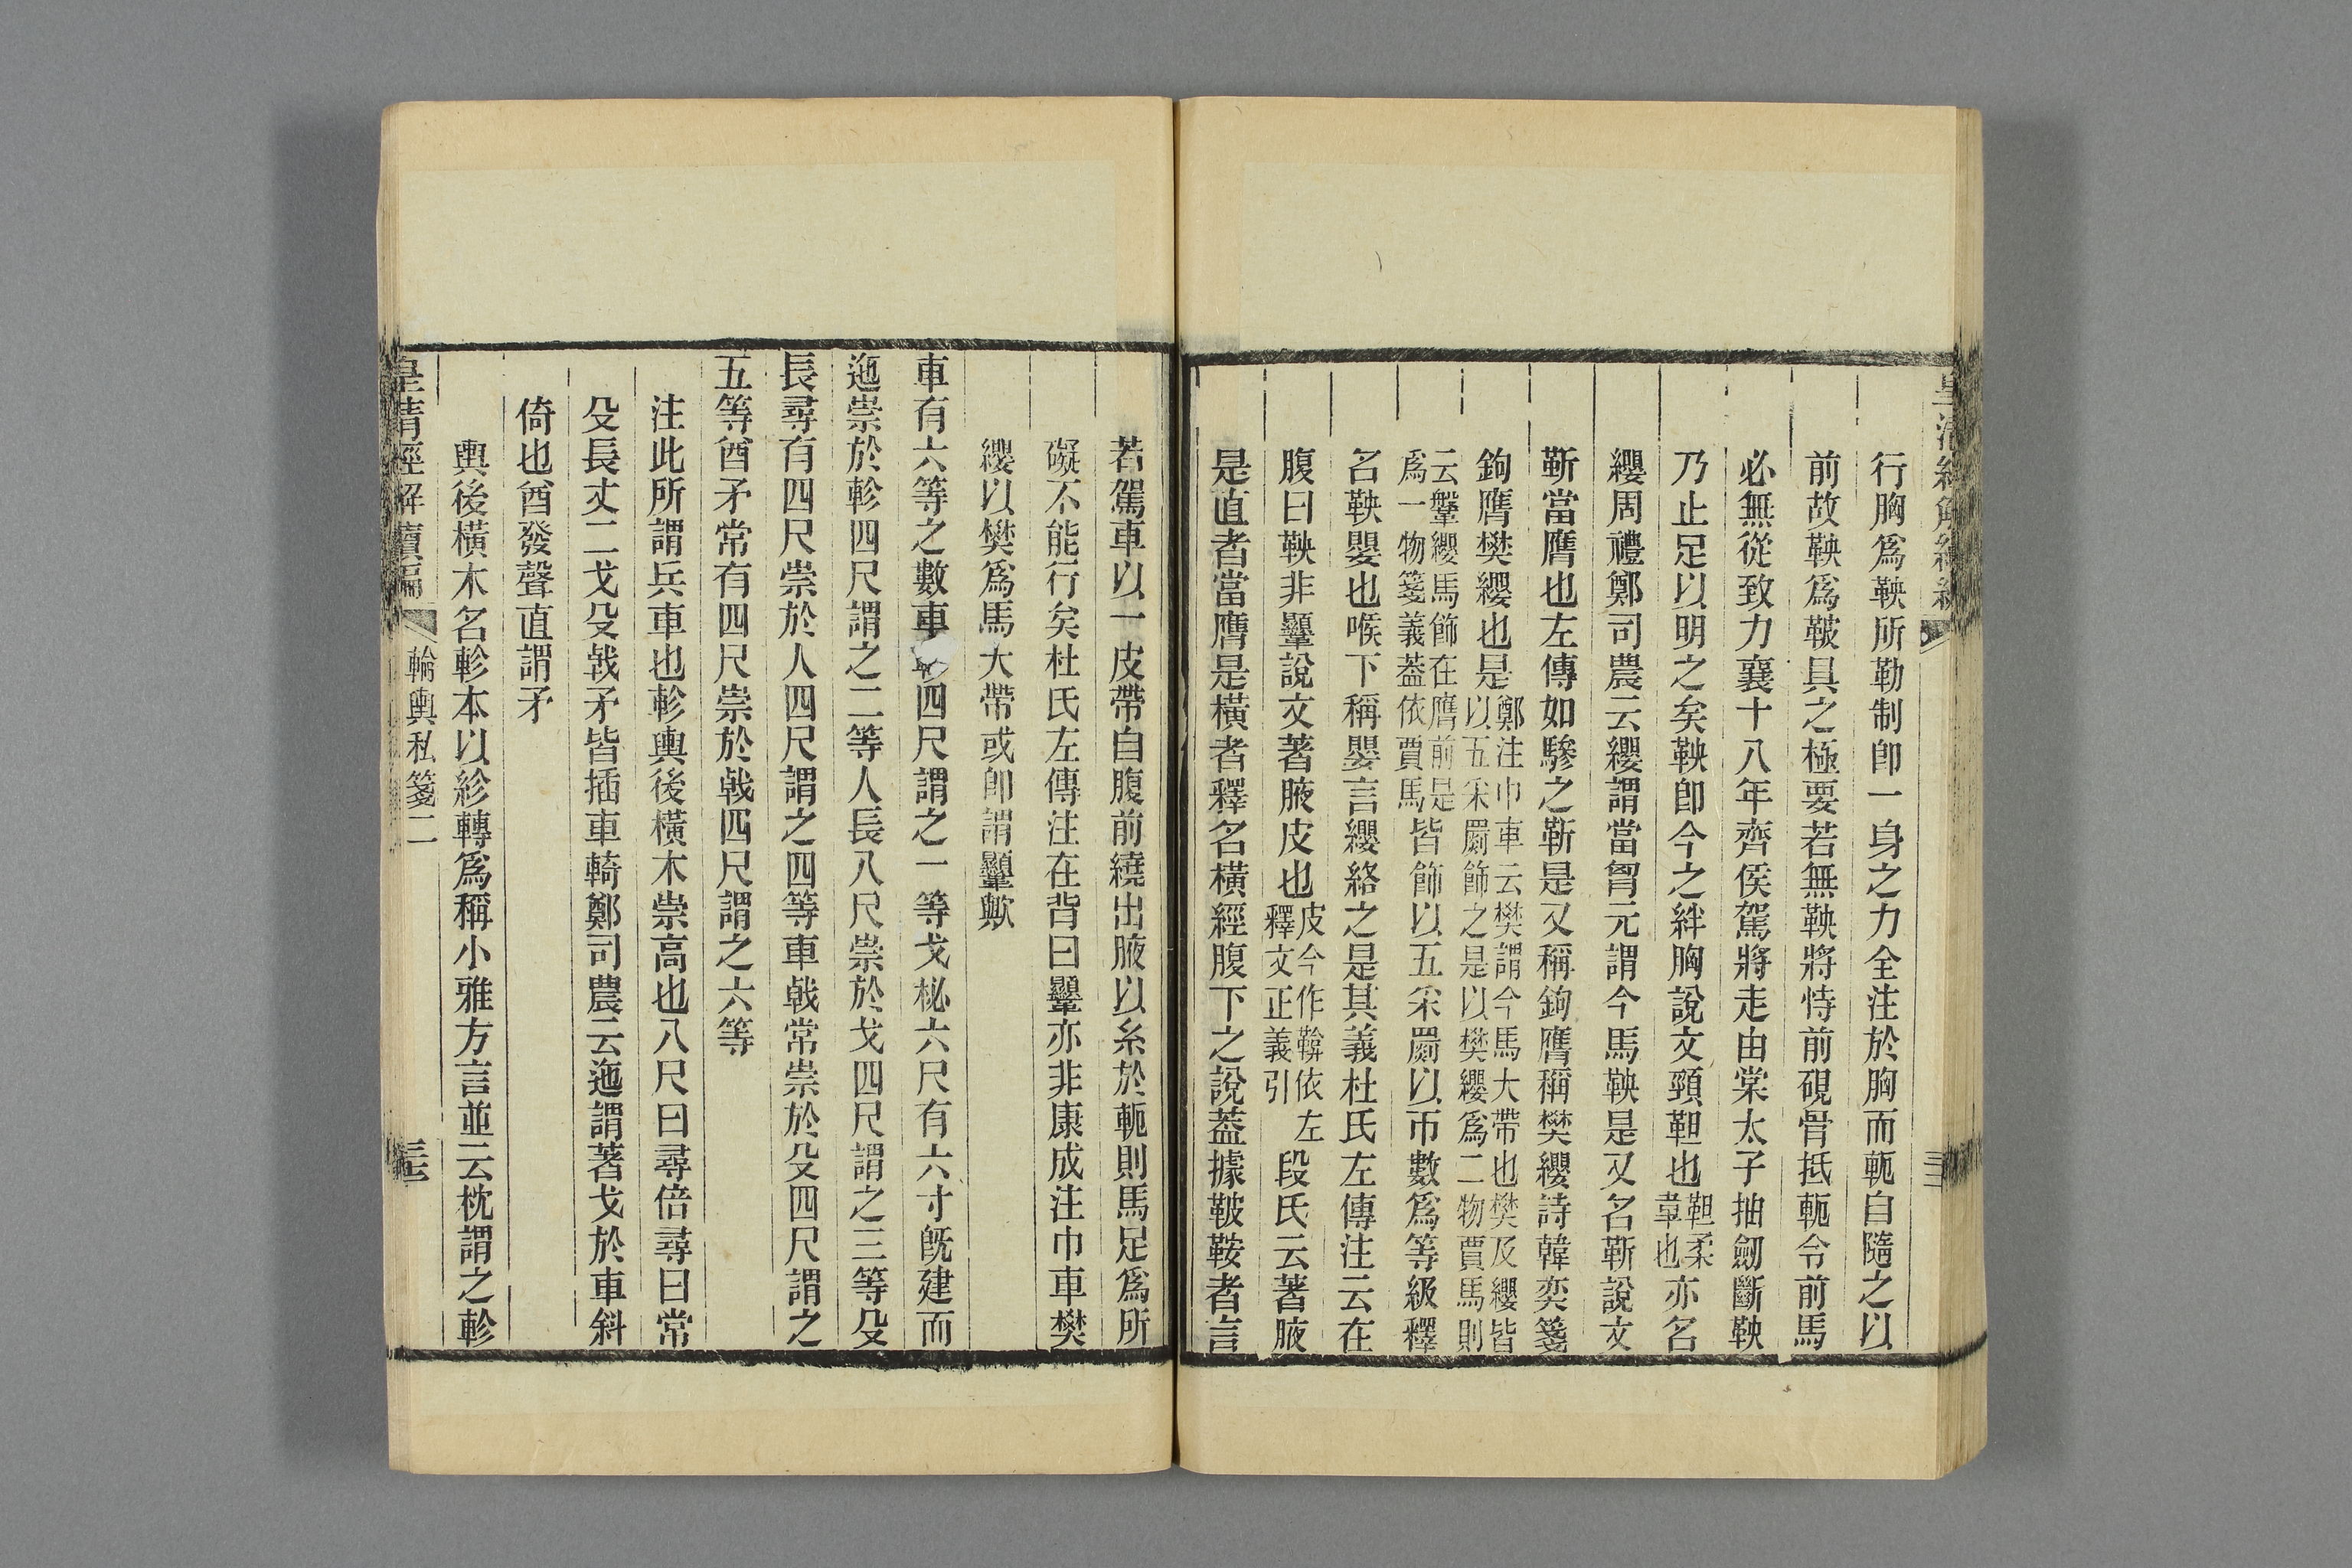 行胸爲鞅所勒制卽一身之力全注於胸而軛自隨之以
前故鞅爲鞁具之極要若無鞅將恃前硯骨抵軛令前馬
必無從致力襄十八年齊侯駕將走由棠太子抽劒斷鞅
乃止足以明之矣鞅卽今之絆胸說文頸靼也靼柔韋也亦名
纓周禮鄭司農云纓謂當胷元謂今馬鞅是又名靳說文
靳當膺也左傳如驂之靳是又稱鉤膺稱樊纓詩韓奕箋
鉤膺樊纓也是鄭注巾車云樊謂今馬大帶也樊及纓皆以五采罽飾之是以樊纓爲二物賈馬則
云鞶纓馬飾在膺前是爲一物箋義葢依賈馬皆飾以五采罽以帀數爲等級釋
名鞅嬰也喉下稱嬰言纓絡之是其義杜氏左傳注云在
腹曰鞅非顯說文著腋皮也皮今作鞥依左釋文正義引段氏云著腋
是直者當膺是橫者釋名橫經腹下之說葢據鞁鞍者言
若駕車以一皮帶自腹前繞出腋以系於軛則馬足爲所
礙不能行矣杜氏左傳注在背曰顯亦非康成注巾車樊
纓以樊爲馬大帶或卽謂顯歟
車有六等之數車四尺謂之一等戈柲六尺有六寸旣建而
迤崇於軫四尺謂之二等人長八尺崇於戈四尺謂之三等殳
長尋有四尺崇於人四尺謂之四等車戟常崇於殳四尺謂之
五等酋矛常有四尺崇於戟四尺謂之六等
注此所謂兵車也軫輿後橫木崇高也八尺曰尋倍尋曰常
殳長丈二戈殳戟矛皆插車輢鄭司農云迤謂著戈於車斜
倚也酋發聲直謂矛
輿後橫木名軫本以紾轉爲稱小雅方言並云枕謂之軫
皇清經解續編 輪輿私箋二